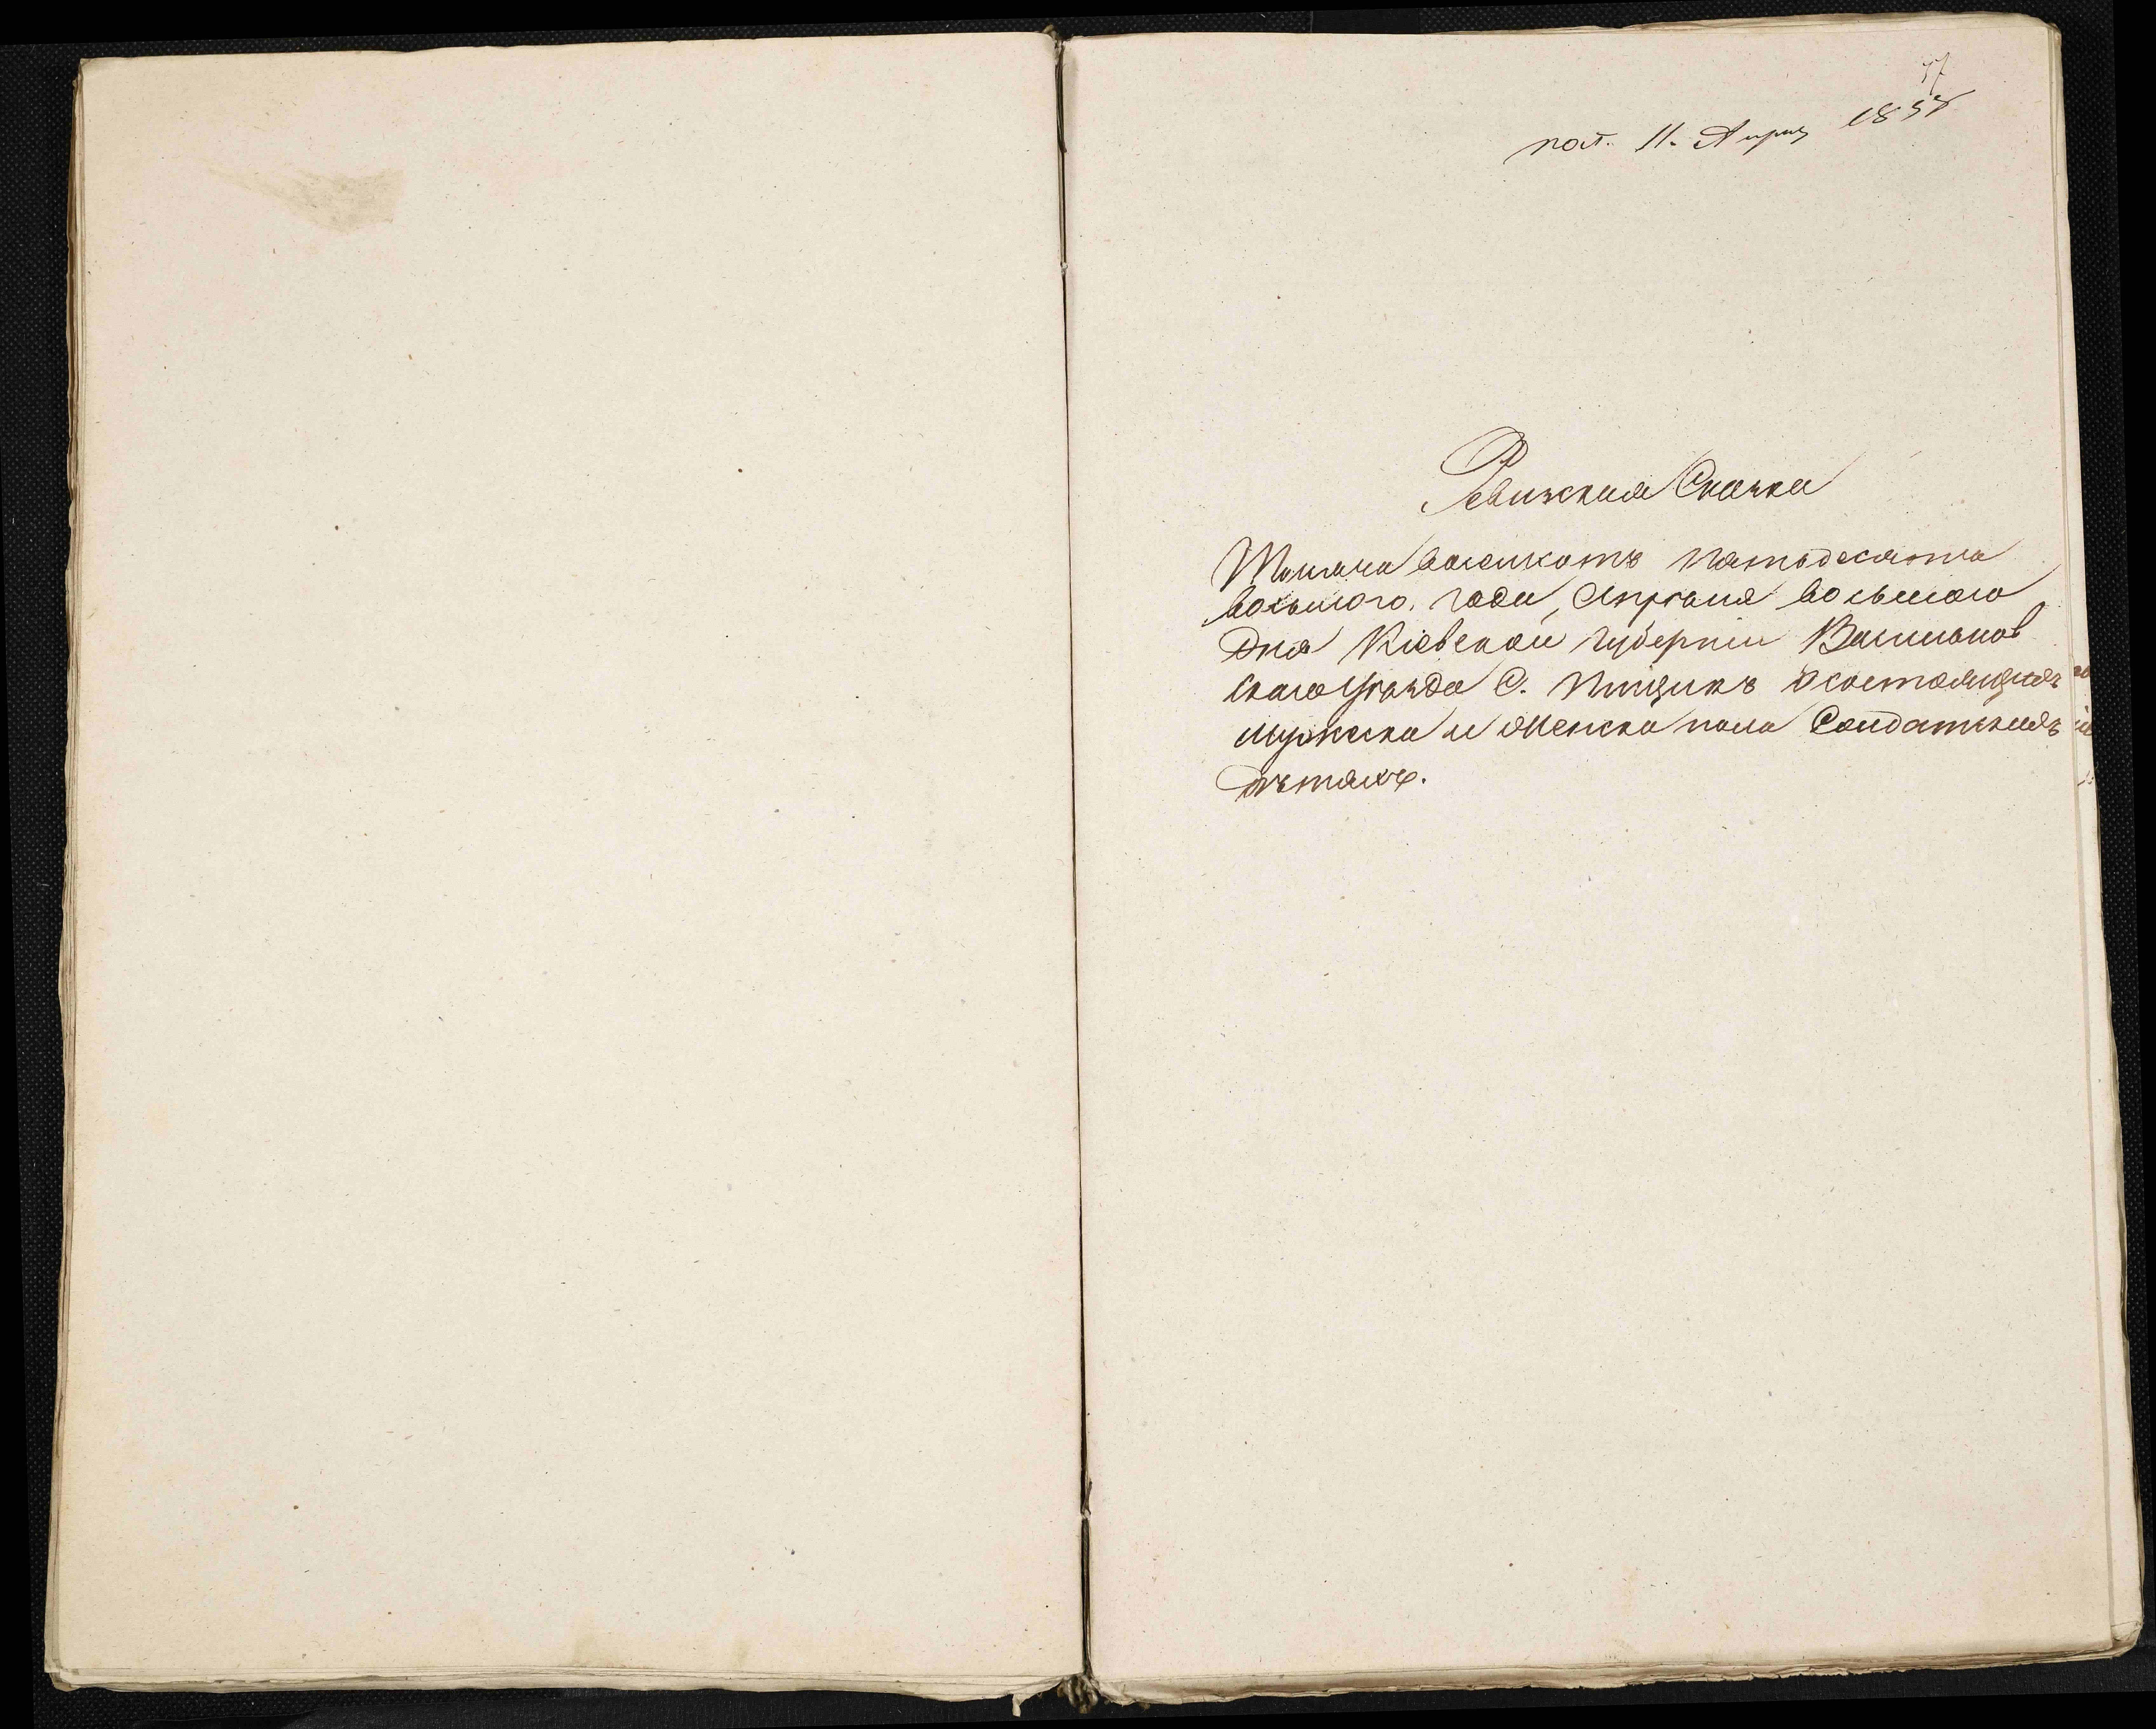 57
пол. 11. Апреля 1858
Ревижская Сказка
Тысяча восемсотъ пятьдесятъ
восьмого года, Апреля восьмаго
дня Кіевской губерніи Васильков
скаго уѣзда С. Пищикъ о состоящихъ
мужеска и женска пола Солдатскихъ
дѣтяхъ.